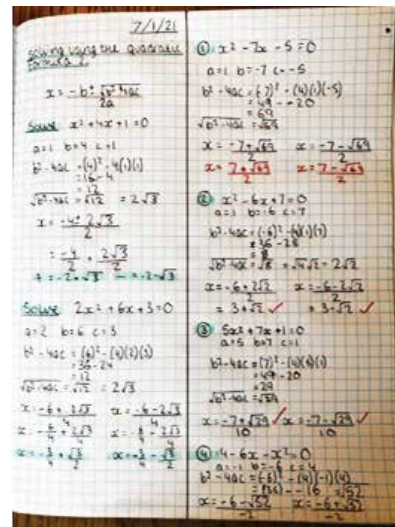 7/1/21
solving using the quadratic
formula 2.
x = -b ± √b² - 4ac
2a
Solve x² + 4x + 1 = 0
a=1 b=4 c=1
b² - 4ac = (4)² - 4(1)(1)
= 16 - 4
= 12
√b² - 4ac = √12 = 2√3
x = -4 ± 2√3
2
= -4/2 ± 2√3/2
+ = -2 + √3 - = -2 - √3
Solve 2x² + 6x + 3 = 0
a=2 b=6 c=3
b² - 4ac = (6)² - (4)(2)(3)
= 36 - 24
= 12
√b² - 4ac = √12 = 2√3
x = -6 + 2√3 x = -6 - 2√3
4 4
① x² - 7x - 5 = 0
a=1 b=-7 c=-5
b² - 4ac = (-7)² - (4)(1)(-5)
= 49 - -20
= 69
√b² - 4ac = √69
x = -7 + √69 x = -7 - √69
2 2
x = 7 + √69 x = 7 - √69
2 2
② x² - 6x + 7 = 0
a=1 b=-6 c=7
b² - 4ac = (-6)² - (4)(1)(7)
= 36 - 28
= 8
√b² - 4ac = √8 = √4√2 = 2√2
x = -6 + 2√2 x = -6 - 2√2
2 2
= 3 + √2 ✓ = 3 - √2 ✓
③ 5x² + 7x + 1 = 0
a=5 b=7 c=1
b² - 4ac = (7)² - (4)(5)(1)
= 49 - 20
= 29
√b² - 4ac = √29
x = -7 + √29 ✓ x = -7 - √29 ✓
10 10
④ 4 - 6x - x² = 0
a=-1 b=-6 c=4
b² - 4ac = (-6)² - (4)(-1)(4)
= (36) - -16 = √52
x = -6 - √52 x = -6 + √52
-2 -2